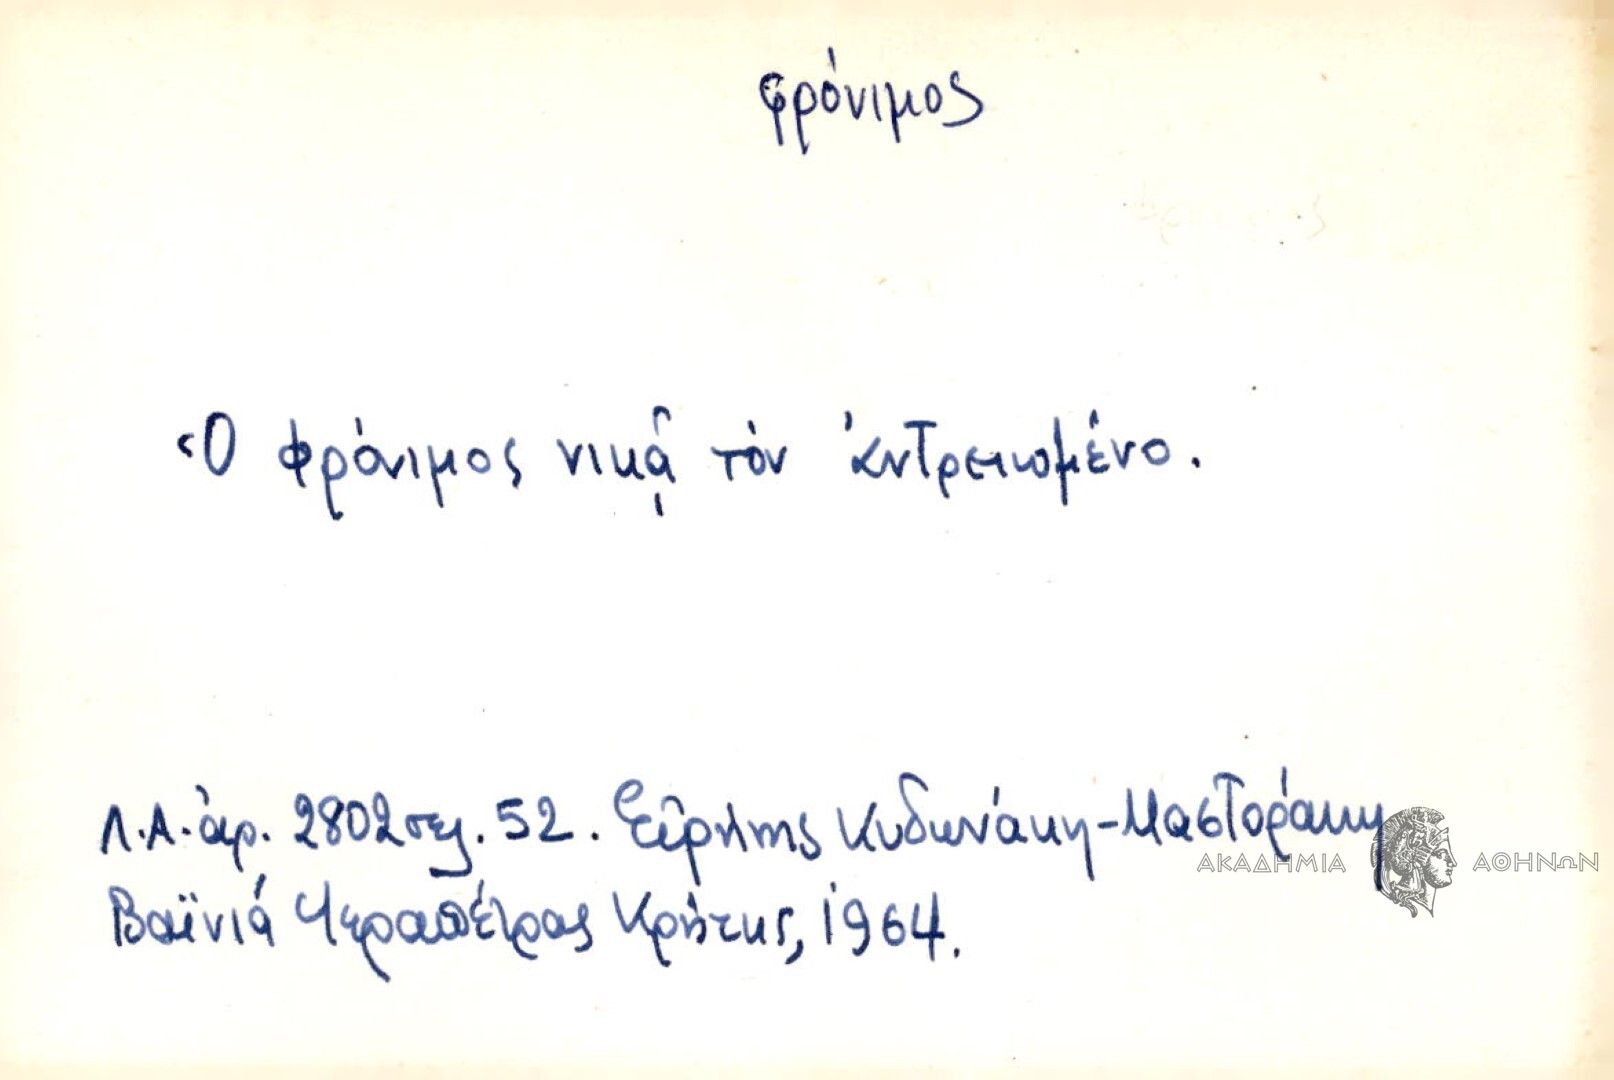 φρόνιμος
Ὁ φρόνιμος νικᾷ τὸν ἀντρειωμένο.
Λ.Α. ἀρ. 2802 σελ. 52. Εἰρήνης Κυδωνάκη-Μαστοράκη
ΑΚΑΔΗΜΙΑ ΑΘΗΝΩΝ
Βαϊνιά Ἱεραπέτρας Κρήτης, 1964.